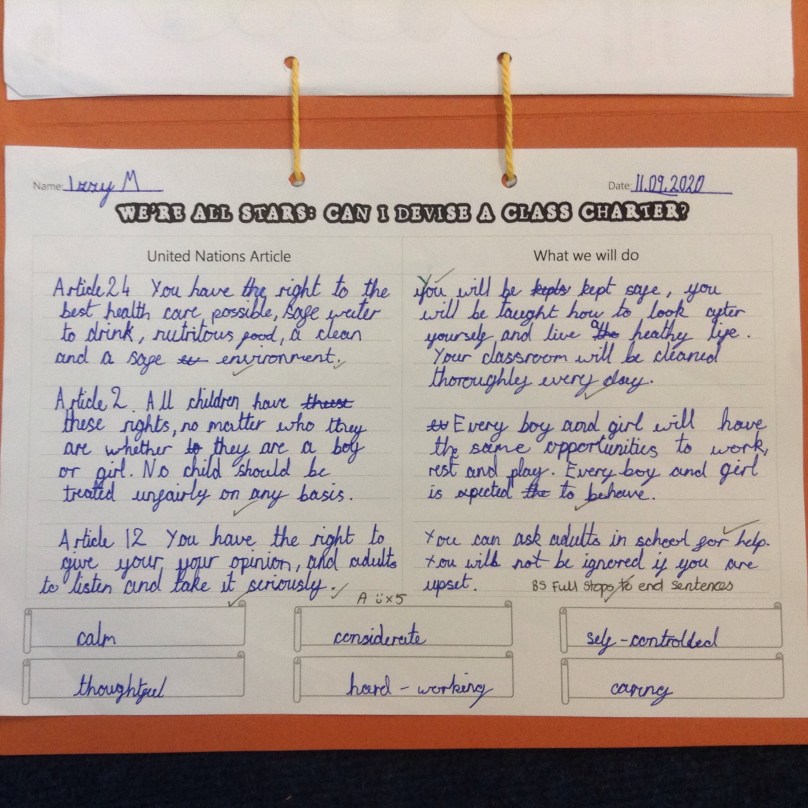 Name: Izzy M
Date: 11.09.2020
WE'RE ALL STARS: CAN I DEVISE A CLASS CHARTER?
United Nations Article
Article 24 You have the right to the
best health care possible, safe water
to drink, nutritous food, a clean
and a safe environment.
Article 2 All children have threst
these rights, no matter who they
are whether to they are a boy
or girl. No child should be
treated unfairly on any basis.
Article 12 You have the right to
give your your opinion, and adults
to listen and take it seriously.
What we will do
You will be kepts kept safe, you
will be taught how to look after
yourself and live the healthy life.
Your classroom will be cleaned
thoroughly every day.
Every boy and girl will have
the same opportunities to work,
rest and play. Every boy and girl
is expected the to behave.
You can ask adults in school for help.
You will not be ignored if you are
upset.
BS Full stops to end sentences
A ü x5
calm
considerate
self-controlled
thoughtful
hard-working
caring